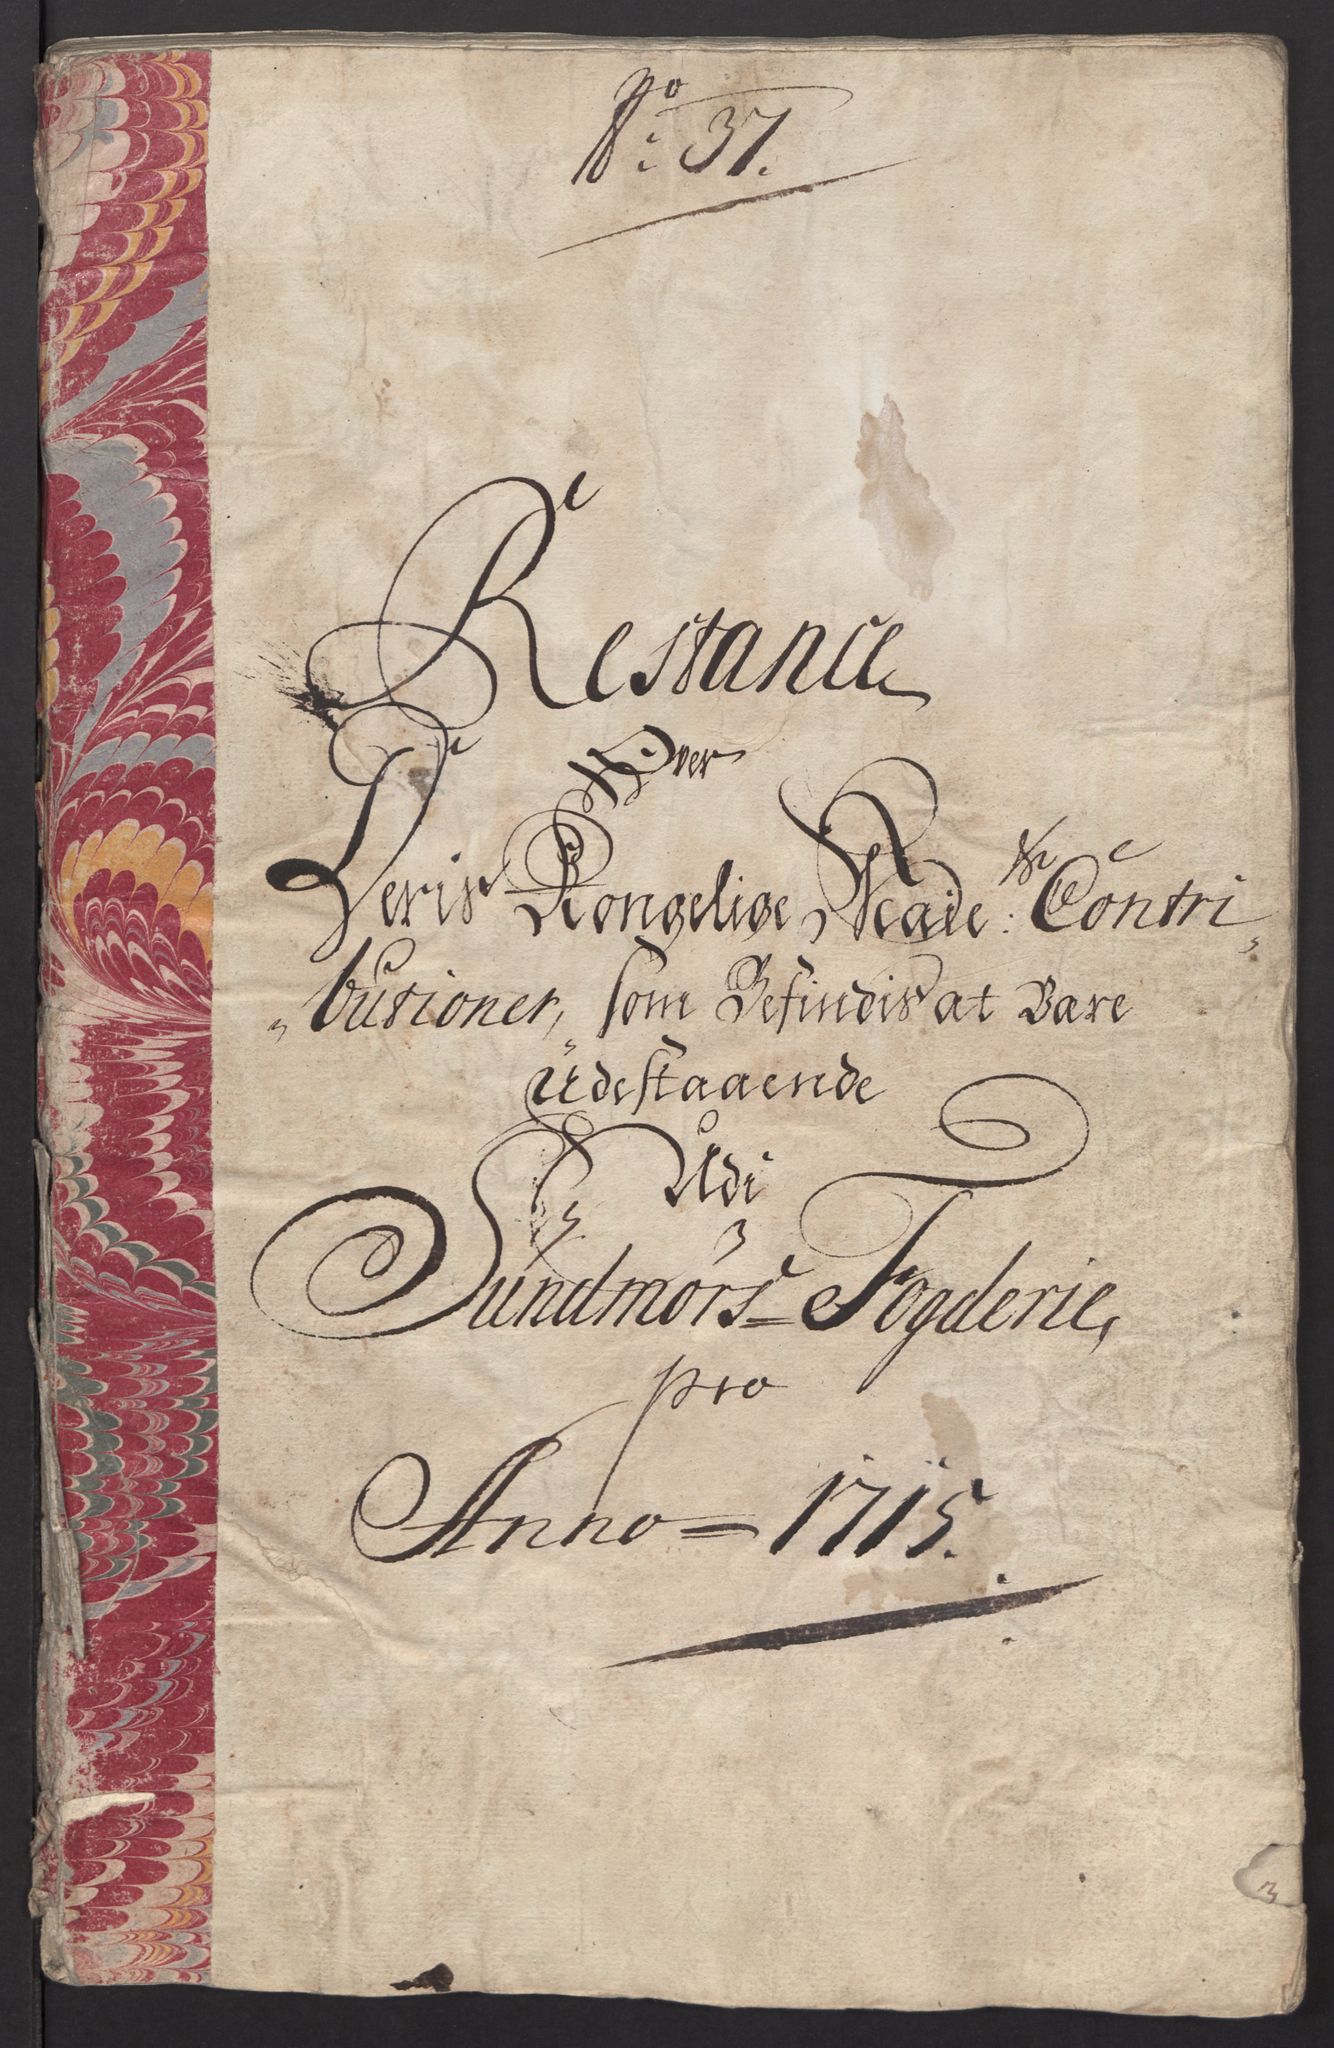 No: 37.
Restance
Over
Deris Kongelige Maits: Contri„
„butioner, som Befindis at Være
Udestaaende
Udi
Sundmørs= Fogderie,
pro
Anno= 1715.